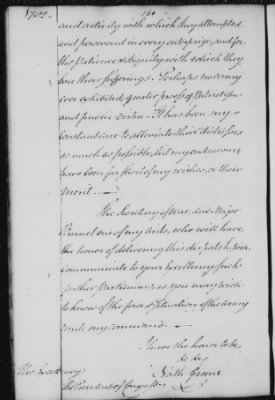 1782.
and activity with which they attempted
and persevered in every enterprize, and for
the patience & dignity with which they
bore their sufferings. Perhaps no army
ever exhibited greater proofs of Patriotism
and public virtue. It has been my
constant care to alleviate their distresses
as much as possible, but my endeavours
have been far short of my wishes or their
merit.
The Secretary of war, and Major
one of my aids, who will have
the honor of delivering this dispatch, will
communicate to your Excellency such
further particulars as you may wish
to know of the force & situation of the Army
under my command.
I have the honor to be
Nath Greene
His Excellency
the President of Congress